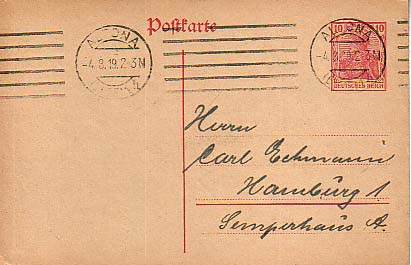 Postkarte
ALTONA
-4.8.19.2-3N
ALTONA
-4.8.19.2-3N
10 10
DEUTSCHES REICH
Herrn
Carl Eckmann
Hamburg 1
Semperhaus A.